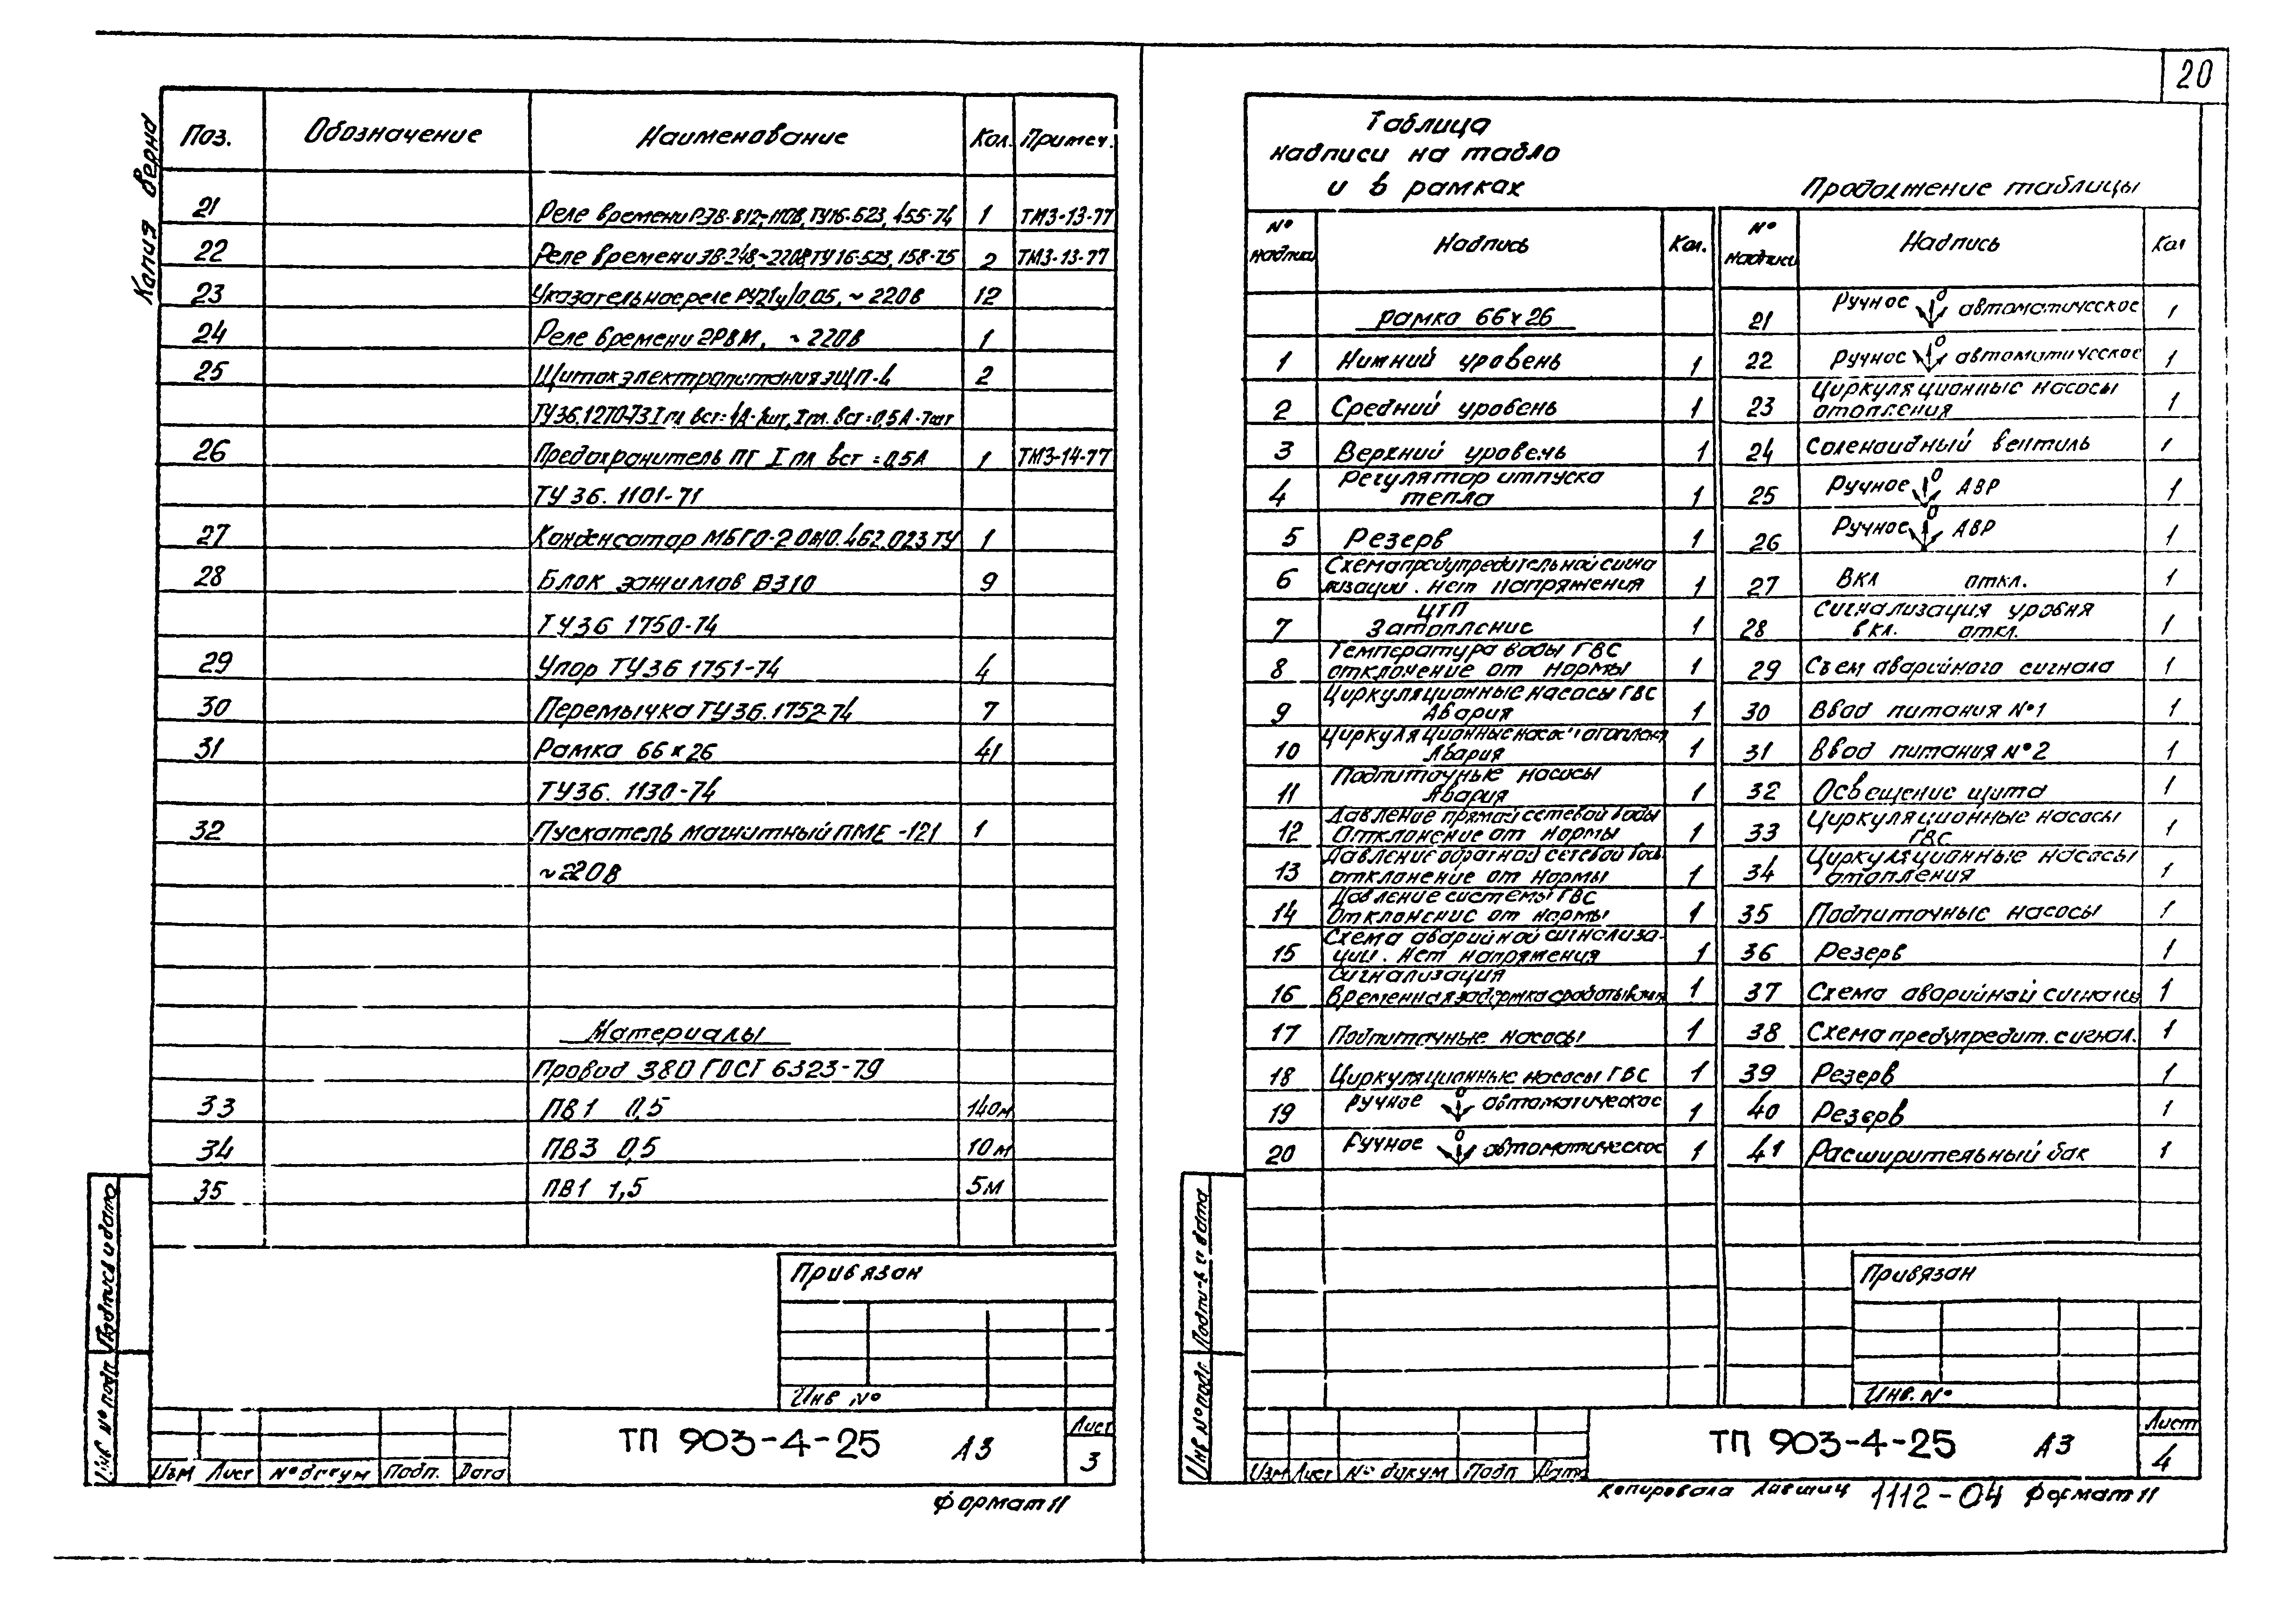 20
Копия верна
Поз. Обозначение Наименование Кол. Примеч.
21 Реле времени РЭВ-812,~110В, ТУ16-523.455-74 1 ТМ3-13-77
22 Реле времени ЭВ-248,~220В, ТУ16-523.158-75 2 ТМ3-13-77
23 Указательное реле РУ21у/0,05, ~ 220В 12
24 Реле времени 2РВМ, ~ 220В 1
25 Щиток электропитания ЭЩП-4 2
ТУ36.1270-73 I пл вст=1А-1шт, I пл. вст=0,5А-7шт
26 Предохранитель ПТ I пл вст =0,5А 1 ТМ3-14-77
ТУ 36. 1101-71
27 Конденсатор МБГО-2 ОЖ0.462.023 ТУ 1
28 Блок зажимов БЗ10 9
ТУ36 1750-74
29 Упор ТУ36 1751-74 4
30 Перемычка ТУ36.1752-74 7
31 Рамка 66×26 41
ТУ36. 1130-74
32 Пускатель магнитный ПМЕ -121 1
~220В
Материалы
Провод 380 ГОСТ 6323-79
33 ПВ1 0,5 140м
34 ПВ3 0,5 10м
35 ПВ1 1,5 5м
Привязан
Инв №
Подпись и дата
Инв № подл
Изм Лист № докум Подп. Дата
ТП 903-4-25 А3
Лист
3
Формат 11
Таблица
надписи на табло
и в рамках
Продолжение таблицы
№ надписи Надпись Кол. № надписи Надпись Кол
рамка 66×26
1 Нижний уровень 1
2 Средний уровень 1
3 Верхний уровень 1
4 Регулятор отпуска
тепла 1
5 Резерв 1
6 Схема предупредительной сигна
лизации. Нет напряжения 1
7 ЦТП
Затопление 1
8 Температура воды ГВС
отклонение от нормы 1
9 Циркуляционные насосы ГВС
Авария 1
10 Циркуляционные насосы отоплен
Авария 1
11 Подпиточные насосы
Авария 1
12 Давление прямой сетевой воды
Отклонение от нормы 1
13 Давление обратной сетевой воды
отклонение от нормы 1
14 Давление системы ГВС
Отклонение от нормы 1
15 Схема аварийной сигнализа-
ции. Нет напряжения 1
16 Сигнализация
Временная задержка срабатывания 1
17 Подпиточные насосы 1
18 Циркуляционные насосы ГВС 1
19 Ручное 0 автоматическое 1
20 Ручное 0 автоматическое 1
21 Ручное 0 автоматическое 1
22 Ручное 0 автоматическое 1
23 Циркуляционные насосы
отопления 1
24 Соленоидный вентиль 1
25 Ручное 0 АВР 1
26 Ручное 0 АВР 1
27 Вкл откл. 1
28 Сигнализация уровня
вкл. откл. 1
29 Съем аварийного сигнала 1
30 Ввод питания №1 1
31 Ввод питания №2 1
32 Освещение щита 1
33 Циркуляционные насосы
ГВС 1
34 Циркуляционные насосы
отопления 1
35 Подпиточные насосы 1
36 Резерв 1
37 Схема аварийной сигнализ 1
38 Схема предупредит. сигнал. 1
39 Резерв 1
40 Резерв 1
41 Расширительный бак 1
Привязан
Инв. №
Подпись и дата
Инв № подл.
Изм Лист № докум Подп Дата
ТП 903-4-25 А3
Лист
4
Копировала 1112-04 Формат 11